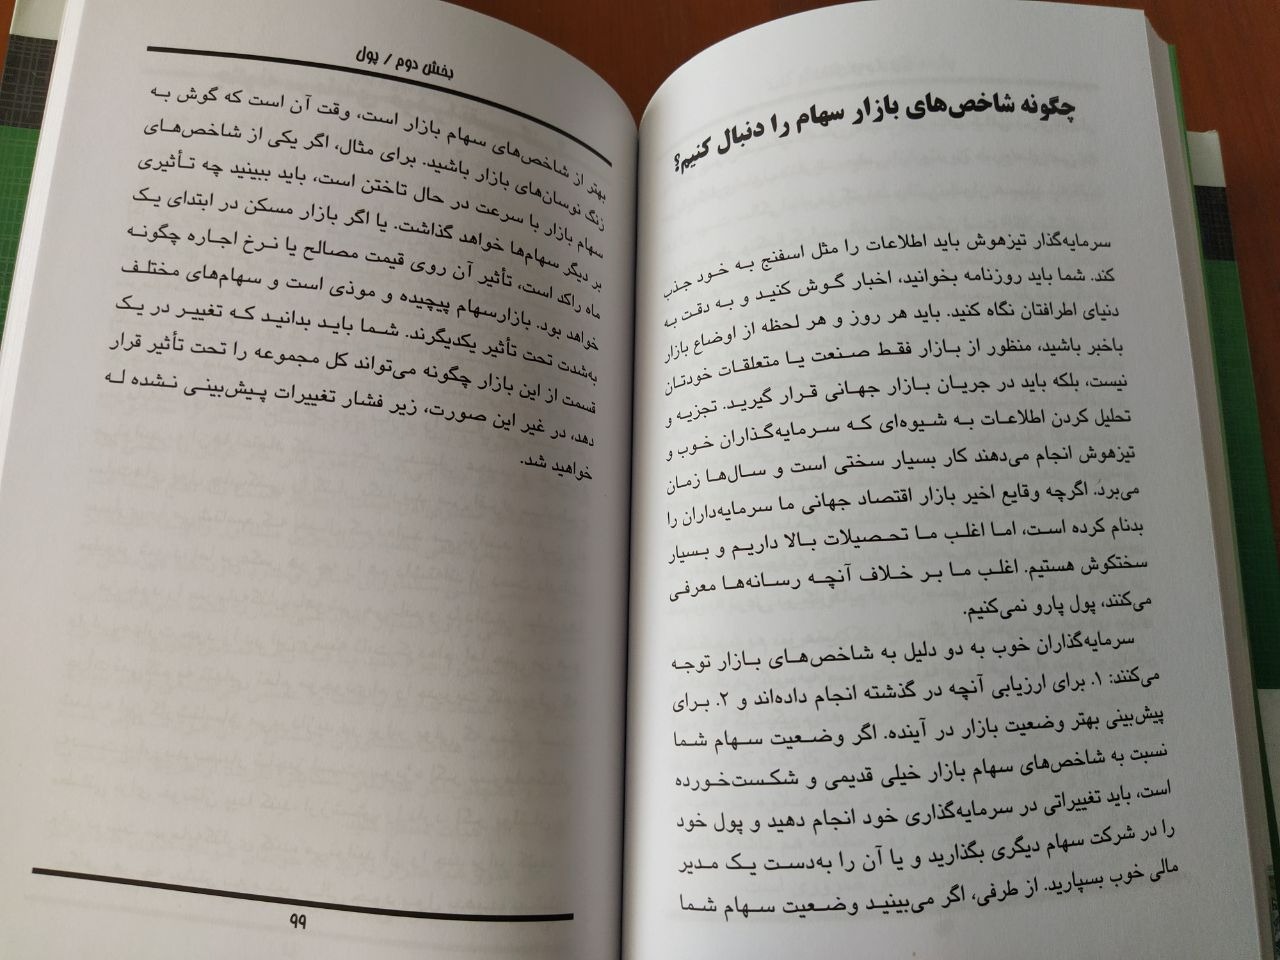 چگونه شاخص‌های بازار سهام را دنبال کنیم؟
سرمایه‌گذار تیزهوش باید اطلاعات را مثل اسفنج به خود جذب
کند. شما باید روزنامه بخوانید، اخبار گوش کنید و به دقت به
دنیای اطرافتان نگاه کنید. باید هر روز و هر لحظه از اوضاع بازار
باخبر باشید، منظور از بازار فقط صنعت یا متعلقات خودتان
نیست، بلکه باید در جریان بازار جهانی قرار گیرید. تجزیه و
تحلیل کردن اطلاعات به شیوه‌ای که سرمایه‌گذاران خوب و
تیزهوش انجام می‌دهند کار بسیار سختی است و سال‌ها زمان
می‌برد. اگرچه وقایع اخیر بازار اقتصاد جهانی ما سرمایه‌داران را
بدنام کرده است، اما اغلب ما تحصیلات بالا داریم و بسیار
سختکوش هستیم. اغلب ما بر خلاف آنچه رسانه‌ها معرفی
می‌کنند، پول پارو نمی‌کنیم.
سرمایه‌گذاران خوب به دو دلیل به شاخص‌های بازار توجه
می‌کنند: ۱. برای ارزیابی آنچه در گذشته انجام داده‌اند و ۲. برای
پیش‌بینی بهتر وضعیت بازار در آینده. اگر وضعیت سهام شما
نسبت به شاخص‌های سهام بازار خیلی قدیمی و شکست‌خورده
است، باید تغییراتی در سرمایه‌گذاری خود انجام دهید و پول خود
را در شرکت سهام دیگری بگذارید و یا آن را به‌دست یک مدیر
مالی خوب بسپارید. از طرفی، اگر می‌بینید وضعیت سهام شما
بخش دوم / پول
بهتر از شاخص‌های سهام بازار است، وقت آن است که گوش به
زنگ نوسان‌های بازار باشید. برای مثال، اگر یکی از شاخص‌های
سهام بازار با سرعت در حال تاختن است، باید ببینید چه تأثیری
بر دیگر سهام‌ها خواهد گذاشت. یا اگر بازار مسکن در ابتدای یک
ماه راکد است، تأثیر آن روی قیمت مصالح یا نرخ اجاره چگونه
خواهد بود. بازارسهام پیچیده و موذی است و سهام‌های مختلف
به‌شدت تحت تأثیر یکدیگرند. شما باید بدانید که تغییر در یک
قسمت از این بازار چگونه می‌تواند کل مجموعه را تحت تأثیر قرار
دهد، در غیر این صورت، زیر فشار تغییرات پیش‌بینی نشده له
خواهید شد.
۹۹